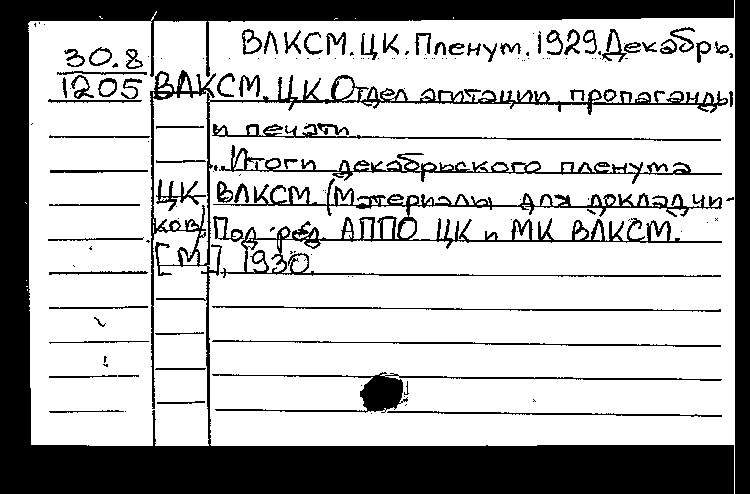 ВЛКСМ. ЦК. Пленум. 1929. Декабрь.
30.8
1205
ВЛКСМ. ЦК. Отдел агитации, пропаганды
и печати.
...Итоги декабрьского пленума
ЦК ВЛКСМ. (Материалы для докладчи-
ков). Под ред. АППО ЦК и МК ВЛКСМ.
[М.], 1930.